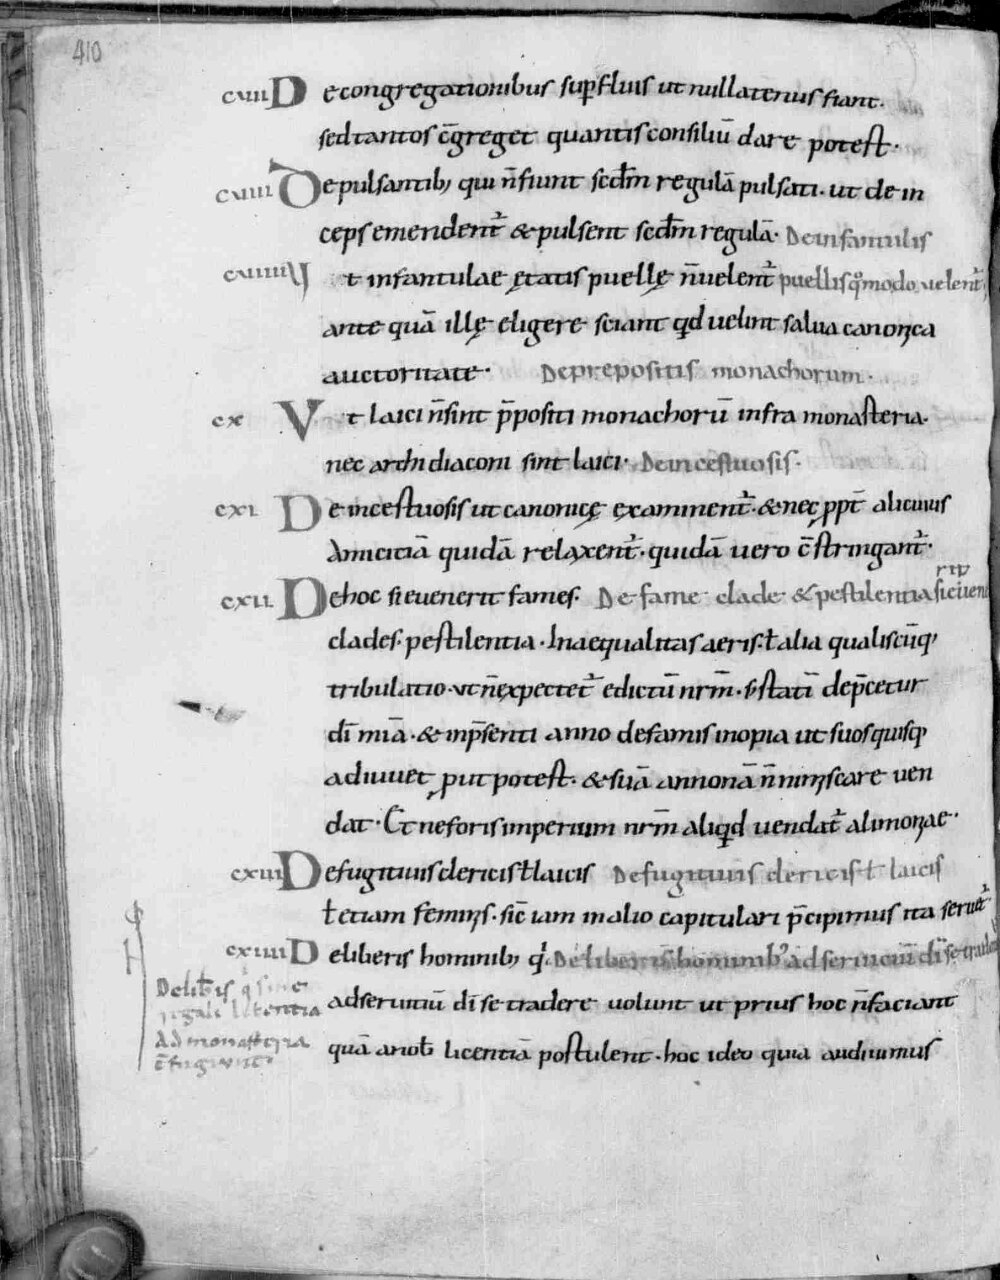 410
cviii De congregationibus suꝑfluis ut nullatenus fiant.
sed tantos c̄greget quantis consiliū dare potest.
cviiii De pulsantib; qui n̄ fiunt scd̄m regulā pulsati. ut de in
ceps emendent᷑ & pulsent scd̄m regulā. De infantulis
cviiii Vt infantulae ętatis puellę n̄ velent᷑ puellis qͦmodo velent᷑
ante quā illę eligere sciant qd velint salua canonica
auctoritate. De prepositis monachorum.
cx Vt laici n̄ sint p̄positi monachorū infra monasteria.
nec archidiaconi sint laici. De incestuosis.
cxi De incestuosis ut canonicę examinent᷑. & nec ꝓpt̄ alicuius
Amicitiā quidā relaxent᷑. quidā uero c̄stringant᷑.
cxii De hoc si euenerit fames. De fame clade & pestilentia si eueni
rit
clades. pestilentia. Inaequalitas aeris. ł alia qualiscūq;
tribulatio. ut n̄ expectet᷑ edictū nr̄m. s; statī dep̄cetur
dī mīa. & in p̄senti anno de famis inopia ut suos quisq;
adiuuet ꝓut potest. & suā annonā n̄ nimis care uen
dat. Et ne foris imperium nr̄m aliqd uendat᷑ alimoniae.
cxiii De fugitiuis clericis ł laicis De fugitiuis clericis ł laicis
ł etiam feminis. sic̄ iam in alio capitulari p̄cipimus ita seruet᷑
cxiiii De liberis hominib; qͥ De liberis hominib; ad seruitiū dī se trade
ad seruitiū dī se tradere uolunt ut prius hoc n̄ faciant
quā a nob̄ licentiā postulent. hoc ideo quia audiuimus
De lib̄is qͥ sine
regali licentia
Ad monasteria
c̄fugiunt